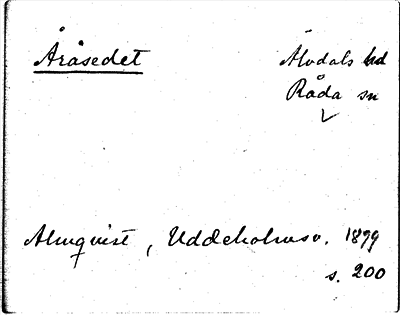 Åråsedet
Älvdals hd
Råda sn
Almquist, Uddeholmsv. 1899
s. 200